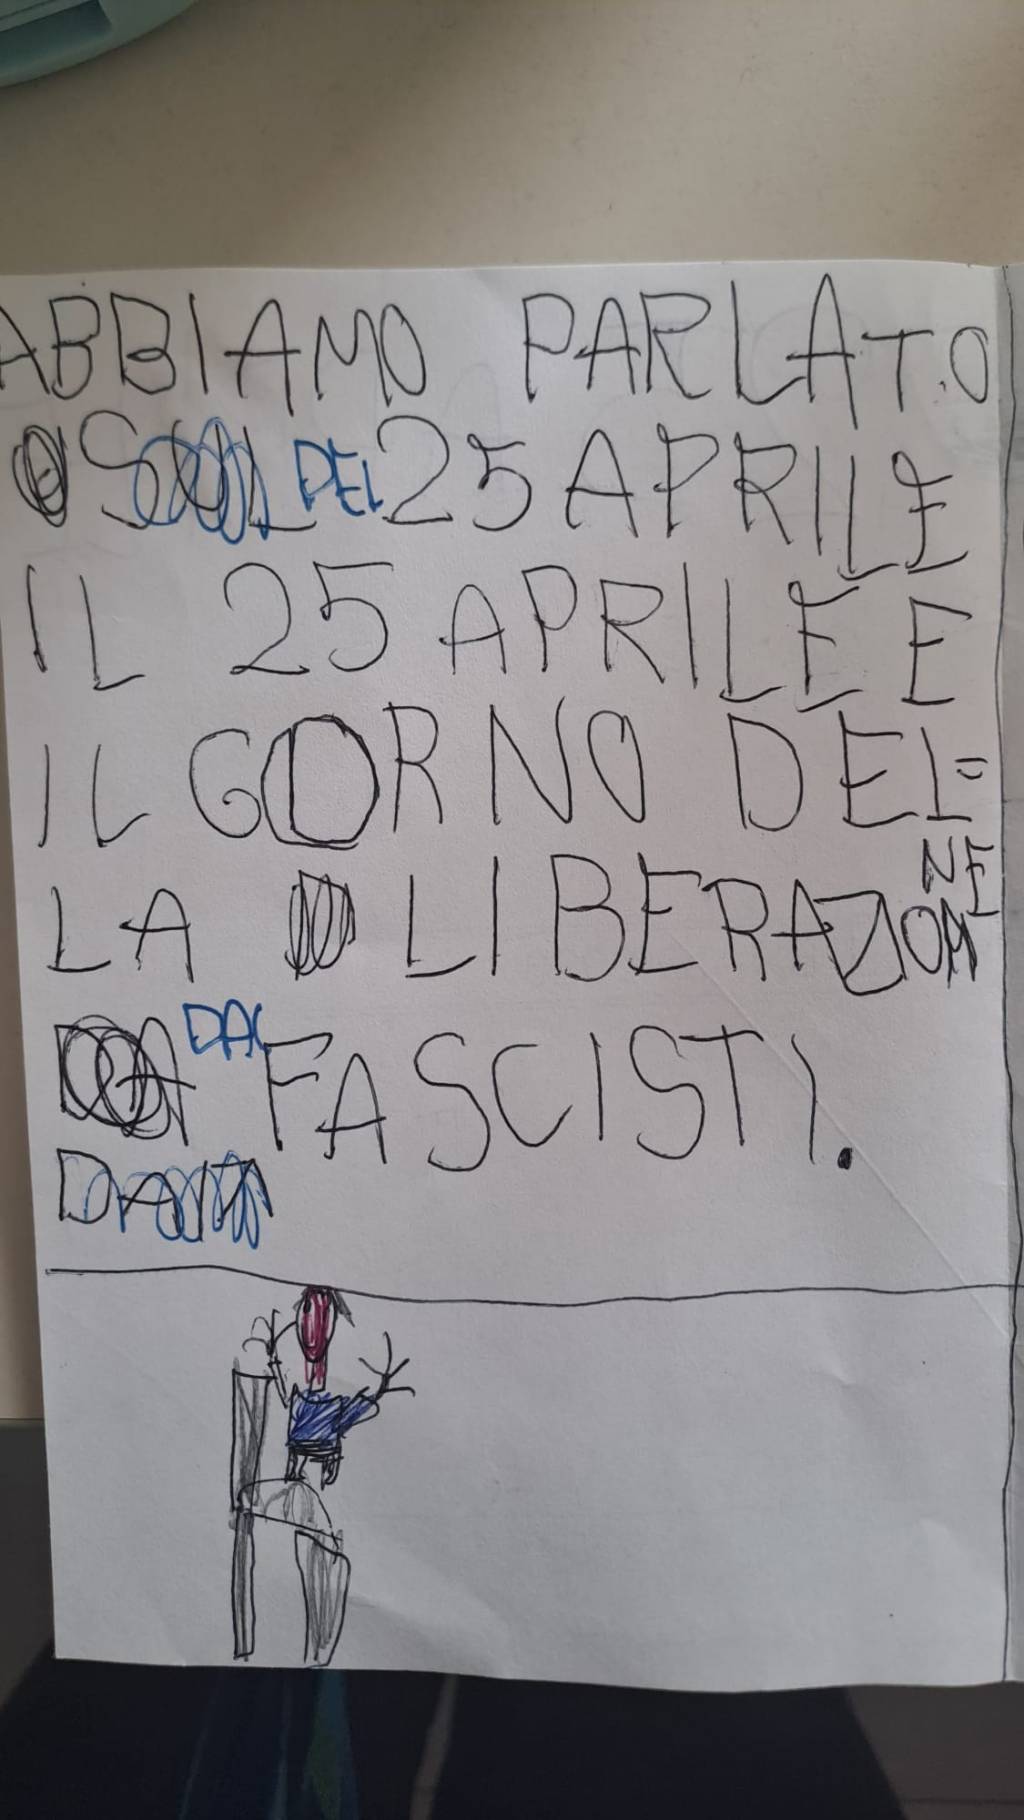 ABBIAMO PARLATO
DEL 25 APRILE
IL 25 APRILE E
IL GORNO DEL=
LA LIBERAZIONE
DAI FASCISTI.